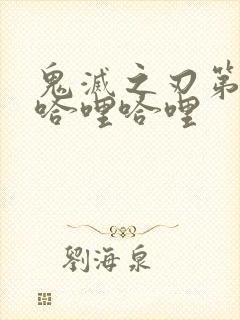 鬼滅之刃第
哈哩哈哩
劉海泉